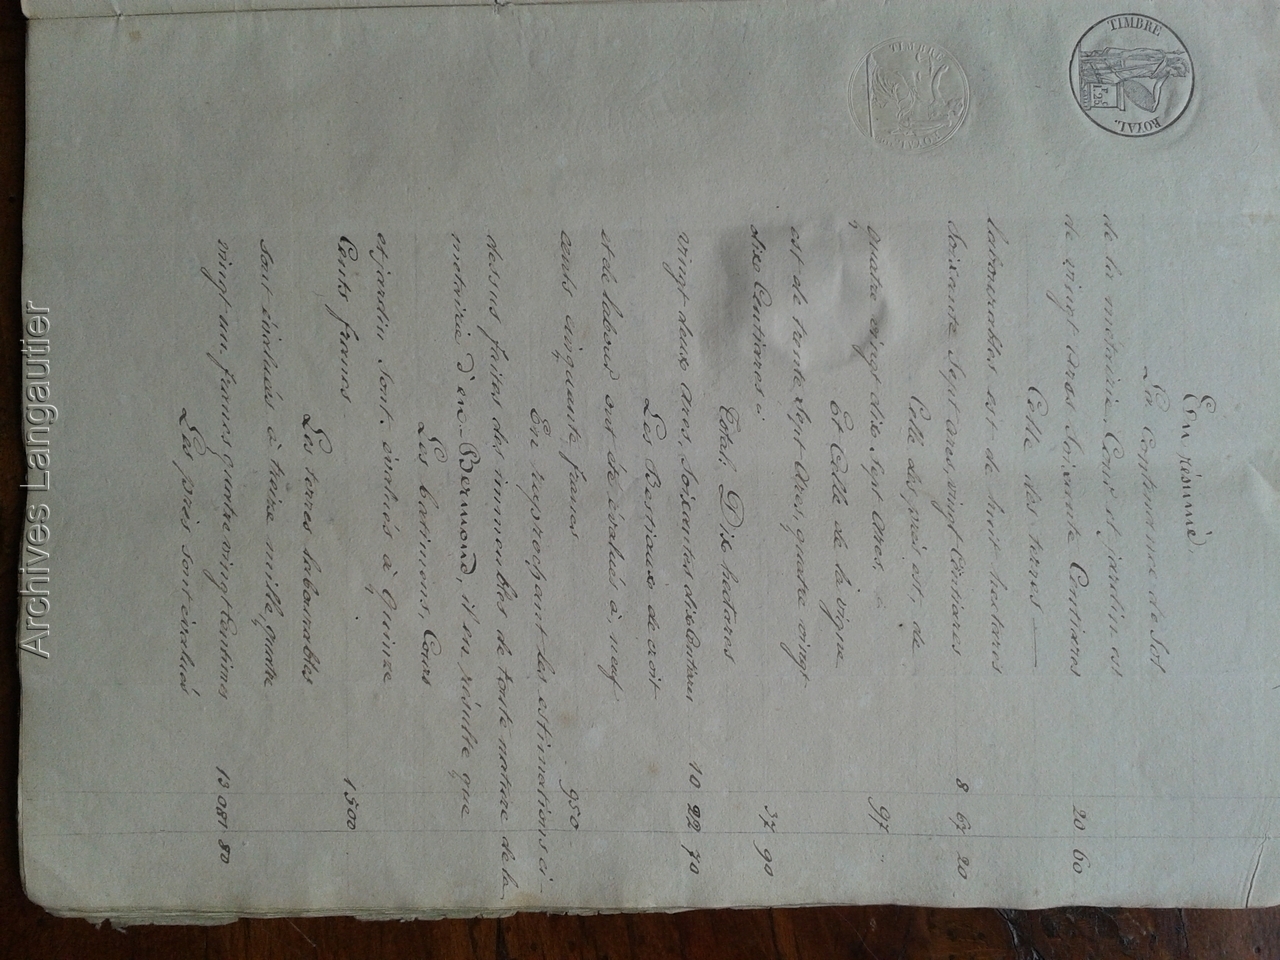 TIMBRE ROYAL
F. C.
1. 25
TIMBRE ROYAL
En résumé.
La Contenance de Sol
de la métairie, Cour et jardin est
de vingt ares, Soixante Centiares 20 60
Celle des terres
labourables est de huit hectares
Soixante Sept ares, vingt Centiares 8 67 20
Celle des prés est, de
quatre vingt dix Sept Ares, 97
Et Celle de la vigne
est de trente Sept Ares, quatre vingt
dix Centiares 37 90
Total, Dix hectares
vingt deux ares, Soixante dix Centiares 10 22 70
Les Bestiaux de croit
et de labour ont été évalués à, neuf
cents cinquante francs 950
En rapprochant les estimations ci
dessus faites des immeubles de toute nature de la
métairie d'en-Bernond, il en résulte que
Les batimens, Cours
et jardin Sont évalués à Quinze
Cents francs 1500
Les terres labourables
Sont évaluées à treize mille, quatre
vingt un francs quatre vingt Centimes 13 081 80
Les prés sont évalués
Archives Langautier